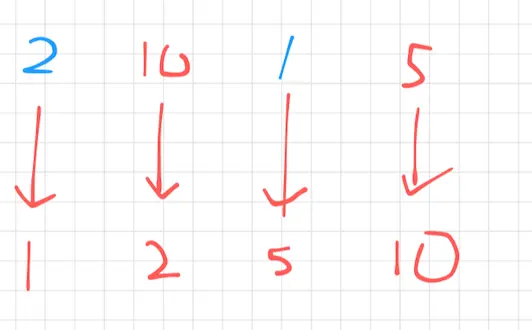 2 10 1 5
1 2 5 10